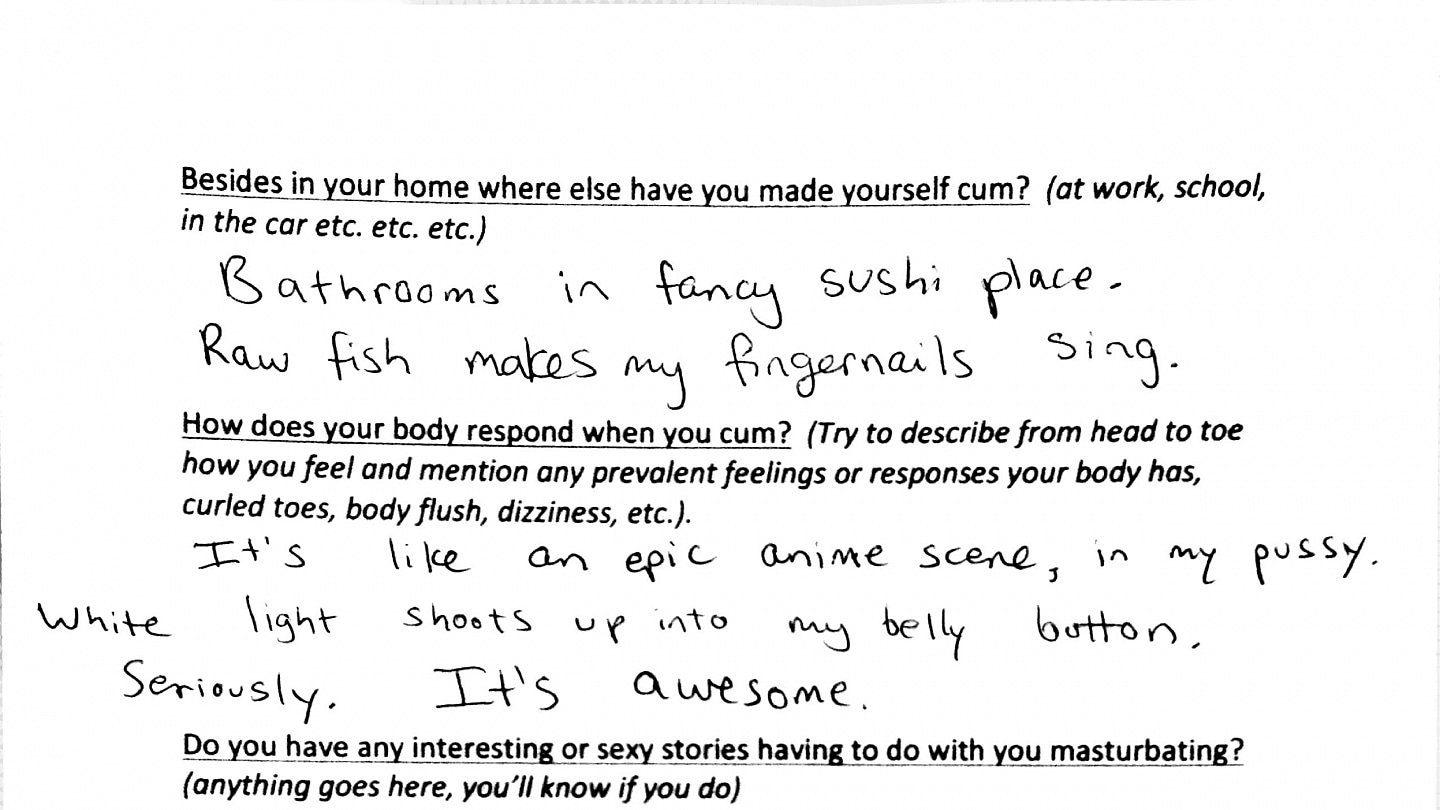 Besides in your home where else have you made yourself cum? (at work, school,
in the car etc. etc. etc.)
Bathrooms in fancy sushi place.
Raw fish makes my fingernails sing.
How does your body respond when you cum? (Try to describe from head to toe
how you feel and mention any prevalent feelings or responses your body has,
curled toes, body flush, dizziness, etc.).
It's like an epic anime scene, in my pussy.
White light shoots up into my belly button.
Seriously. It's awesome.
Do you have any interesting or sexy stories having to do with you masturbating?
(anything goes here, you'll know if you do)